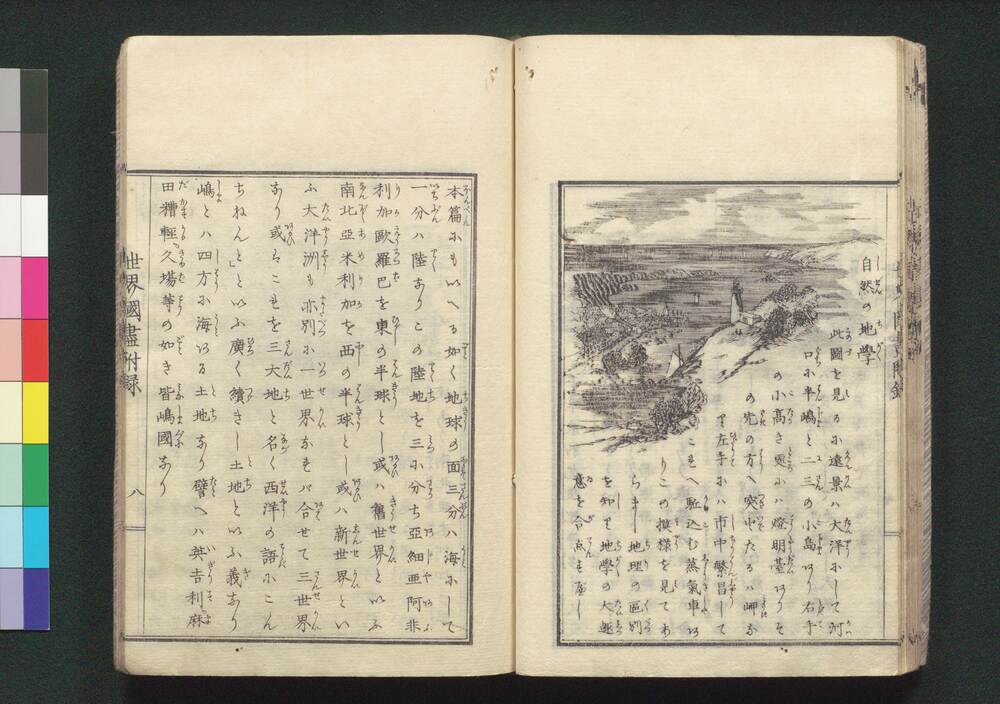 自然の地學
此圖を見るに遠景ハ大洋にして洲
口に半嶋と二三の小島あり右手
の小高き處にハ燈明臺ありそ
の先の方へ突出たるハ岬な
り左手にハ市中繁昌して
こゝへ駈込む蒸氣車あ
りこの模様を見てあ
らまし地理の區別
を知り地學の大趣
意を合点す屋し
本篇にもいへる如く地球の面三分ハ海にして
一分ハ陸なりこの陸地を三に分ち亞細亜阿非
利加歐羅巴を東の半球とし或ハ舊世界といふ
南北亞米利加を西の半球とし或ハ新世界とい
ふ大洋洲も亦別に一世界なれバ合せて三世界
なり或はこれを三大地と名く西洋の語にこん
ちねんといふ廣く續きし土地といふ義なり
嶋とハ四方に海ある土地なり譬へハ英吉利麻
田糟軽久場等の如き皆嶋國なり
世界國盡附録
八